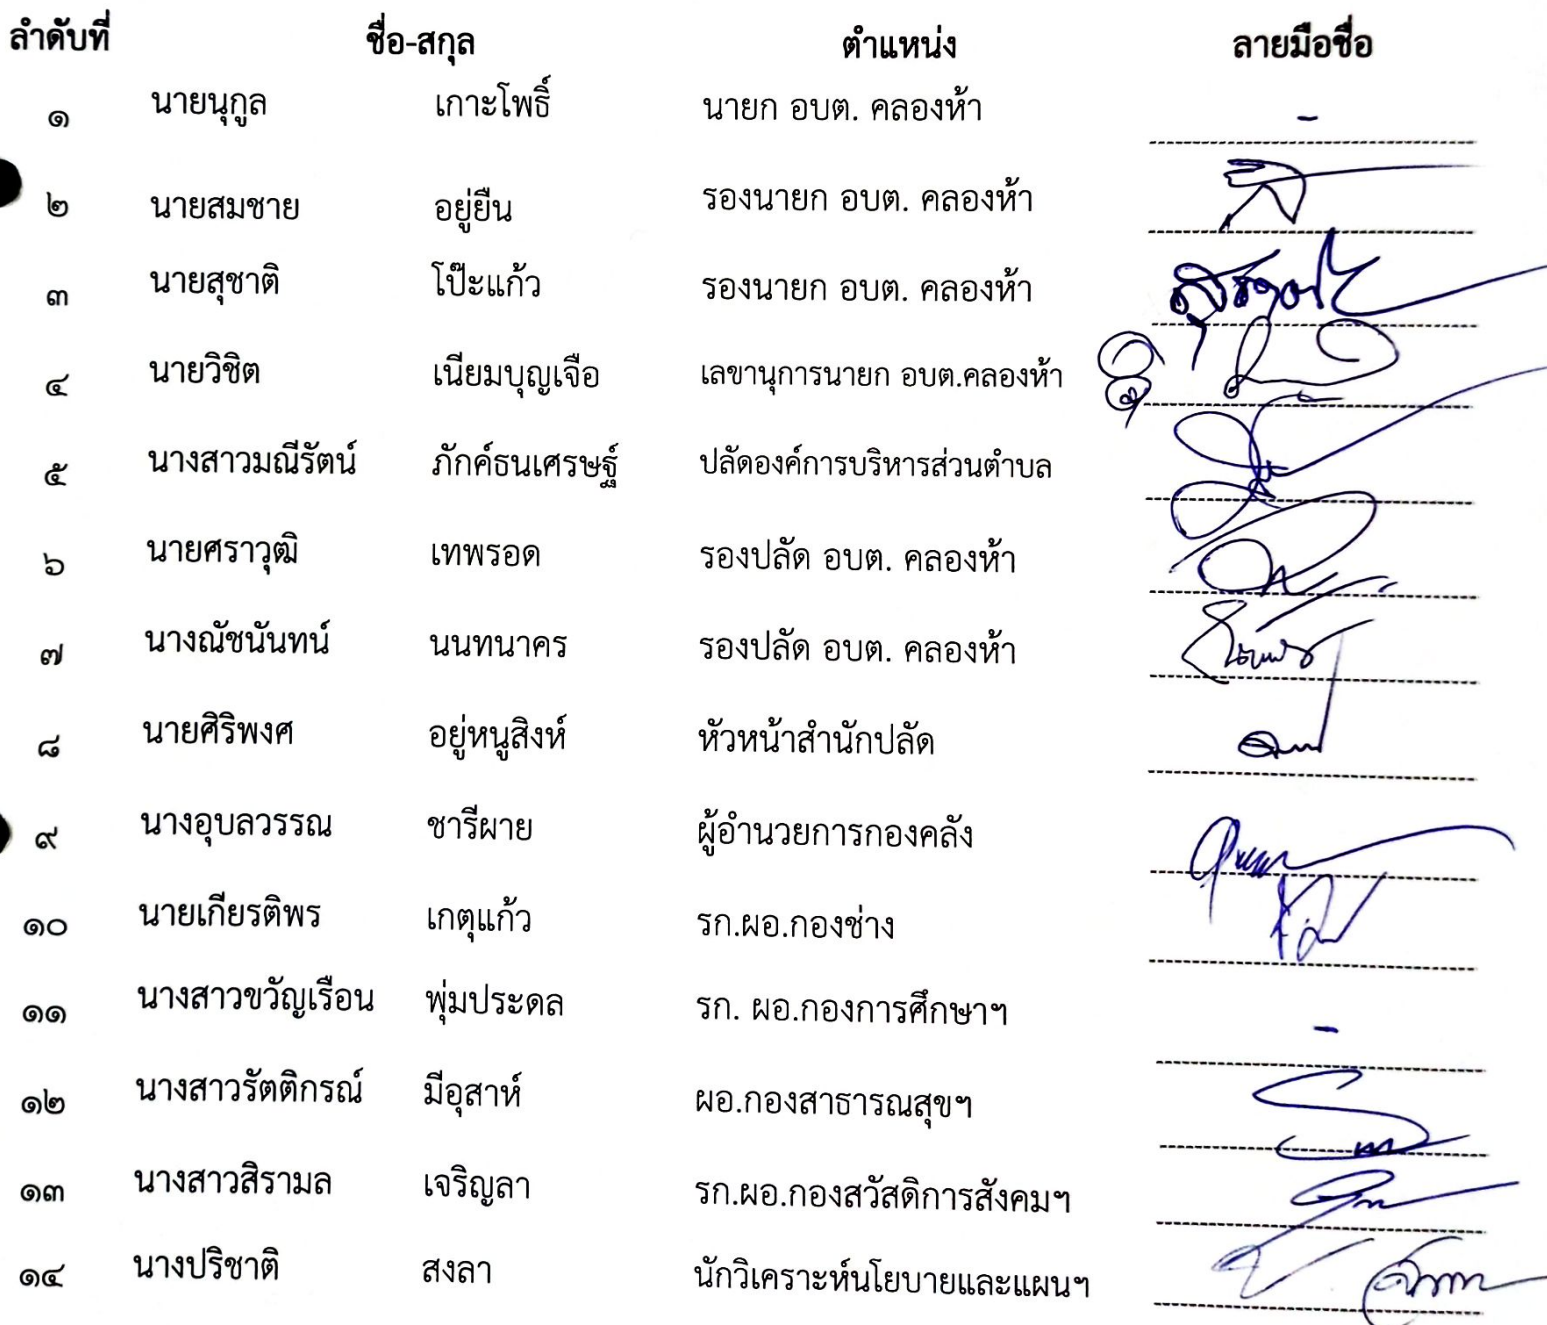 ลำดับที่ ชื่อ-สกุล ตำแหน่ง ลายมือชื่อ
๑ นายนุกูล เกาะโพธิ์ นายก อบต. คลองห้า -
๒ นายสมชาย อยู่ยืน รองนายก อบต. คลองห้า
๓ นายสุชาติ โป๊ะแก้ว รองนายก อบต. คลองห้า
๔ นายวิชิต เนียมบุญเจือ เลขานุการนายก อบต.คลองห้า
๕ นางสาวมณีรัตน์ ภักค์ธนเศรษฐ์ ปลัดองค์การบริหารส่วนตำบล
๖ นายศราวุฒิ เทพรอด รองปลัด อบต. คลองห้า
๗ นางณัชนันทน์ นนทนาคร รองปลัด อบต. คลองห้า
๘ นายศิริพงศ อยู่หนูสิงห์ หัวหน้าสำนักปลัด
๙ นางอุบลวรรณ ชารีผาย ผู้อำนวยการกองคลัง
๑๐ นายเกียรติพร เกตุแก้ว รก.ผอ.กองช่าง
๑๑ นางสาวขวัญเรือน พุ่มประดล รก. ผอ.กองการศึกษาฯ -
๑๒ นางสาวรัตติกรณ์ มีอุสาห์ ผอ.กองสาธารณสุขฯ
๑๓ นางสาวสิรามล เจริญลา รก.ผอ.กองสวัสดิการสังคมฯ
๑๔ นางปริชาติ สงลา นักวิเคราะห์นโยบายและแผนฯ